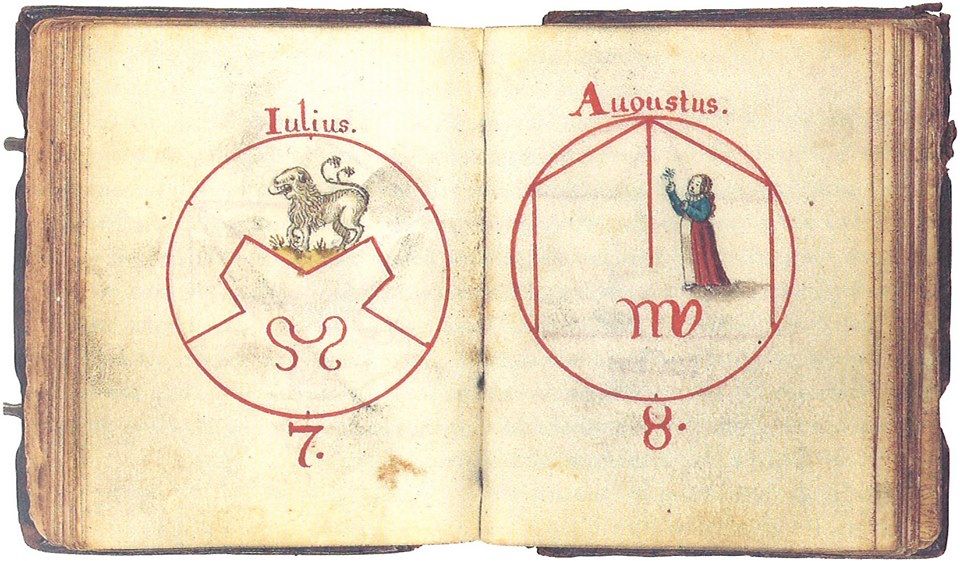 Iulius.
7.
Augustus.
8.